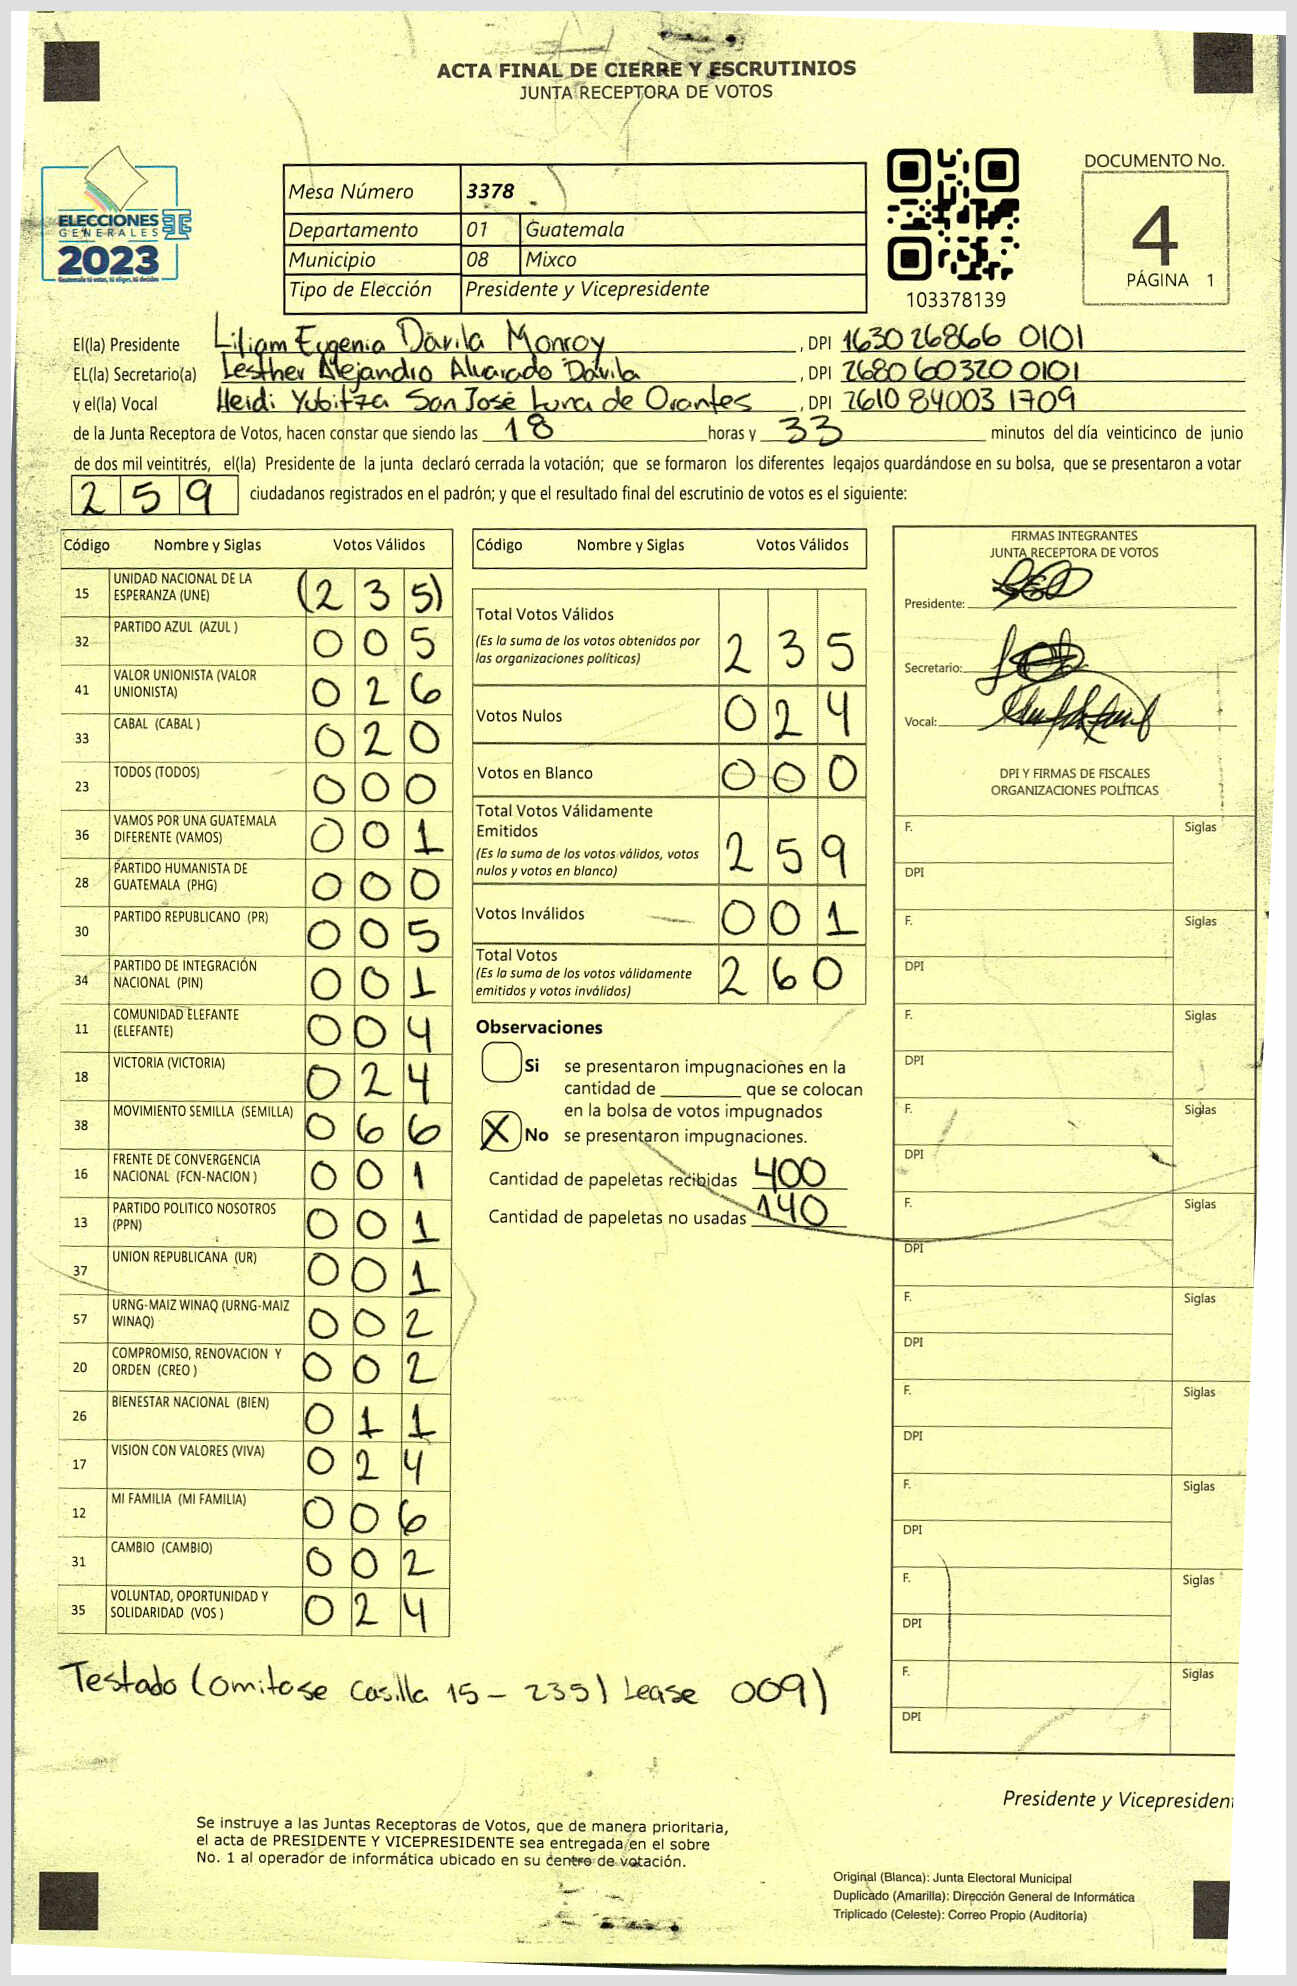 ACTA FINAL DE CIERRE Y ESCRUTINIOS
JUNTA RECEPTORA DE VOTOS
ELECCIONES
GENERALES
2023
Mesa Número 3378
Departamento 01 Guatemala
Municipio 08 Mixco
Tipo de Elección Presidente y Vicepresidente
103378139
DOCUMENTO No.
4
PÁGINA 1
El(la) Presidente Liliam Eugenia Dávila Monroy, DPI 1630 26866 0101
EL(la) Secretario(a) Lesther Alejandro Alvarado Dávila, DPI 2680 60320 0101
y el(la) Vocal Heidi Yubitza San José Luna de Orantes, DPI 2610 84003 1709
de la Junta Receptora de Votos, hacen constar que siendo las 18 horas y 33 minutos del día veinticinco de junio
de dos mil veintitrés, el(la) Presidente de la junta declaró cerrada la votación; que se formaron los diferentes legajos guardándose en su bolsa, que se presentaron a votar
259 ciudadanos registrados en el padrón; y que el resultado final del escrutinio de votos es el siguiente:
Código Nombre y Siglas Votos Válidos
15 UNIDAD NACIONAL DE LA ESPERANZA (UNE) (235)
32 PARTIDO AZUL (AZUL ) 005
41 VALOR UNIONISTA (VALOR UNIONISTA) 026
33 CABAL (CABAL ) 020
23 TODOS (TODOS) 000
36 VAMOS POR UNA GUATEMALA DIFERENTE (VAMOS) 001
28 PARTIDO HUMANISTA DE GUATEMALA (PHG) 000
30 PARTIDO REPUBLICANO (PR) 005
34 PARTIDO DE INTEGRACIÓN NACIONAL (PIN) 001
11 COMUNIDAD ELEFANTE (ELEFANTE) 004
18 VICTORIA (VICTORIA) 024
38 MOVIMIENTO SEMILLA (SEMILLA) 066
16 FRENTE DE CONVERGENCIA NACIONAL (FCN-NACION ) 001
13 PARTIDO POLITICO NOSOTROS (PPN) 001
37 UNION REPUBLICANA (UR) 001
57 URNG-MAIZ WINAQ (URNG-MAIZ WINAQ) 002
20 COMPROMISO, RENOVACION Y ORDEN (CREO ) 002
26 BIENESTAR NACIONAL (BIEN) 011
17 VISION CON VALORES (VIVA) 024
12 MI FAMILIA (MI FAMILIA) 006
31 CAMBIO (CAMBIO) 002
35 VOLUNTAD, OPORTUNIDAD Y SOLIDARIDAD (VOS ) 024
Código Nombre y Siglas Votos Válidos
Total Votos Válidos
(Es la suma de los votos obtenidos por
las organizaciones políticas) 235
Votos Nulos 024
Votos en Blanco 000
Total Votos Válidamente
Emitidos
(Es la suma de los votos válidos, votos
nulos y votos en blanco) 259
Votos Inválidos 001
Total Votos
(Es la suma de los votos válidamente
emitidos y votos inválidos) 260
Observaciones
Si se presentaron impugnaciones en la
cantidad de ________ que se colocan
en la bolsa de votos impugnados
X No se presentaron impugnaciones.
Cantidad de papeletas recibidas 400
Cantidad de papeletas no usadas 140
FIRMAS INTEGRANTES
JUNTA RECEPTORA DE VOTOS
Presidente:
Secretario:
Vocal:
DPI Y FIRMAS DE FISCALES
ORGANIZACIONES POLÍTICAS
F. Siglas
DPI
F. Siglas
DPI
F. Siglas
DPI
F. Siglas
DPI
F. Siglas
DPI
F. Siglas
DPI
F. Siglas
DPI
F. Siglas
DPI
F. Siglas
DPI
F. Siglas
DPI
Testado (omitase casilla 15 - 235) Lease 009)
Presidente y Vicepresiden
Se instruye a las Juntas Receptoras de Votos, que de manera prioritaria,
el acta de PRESIDENTE Y VICEPRESIDENTE sea entregada en el sobre
No. 1 al operador de informática ubicado en su centro de votación.
Original (Blanca): Junta Electoral Municipal
Duplicado (Amarilla): Dirección General de Informática
Triplicado (Celeste): Correo Propio (Auditoría)